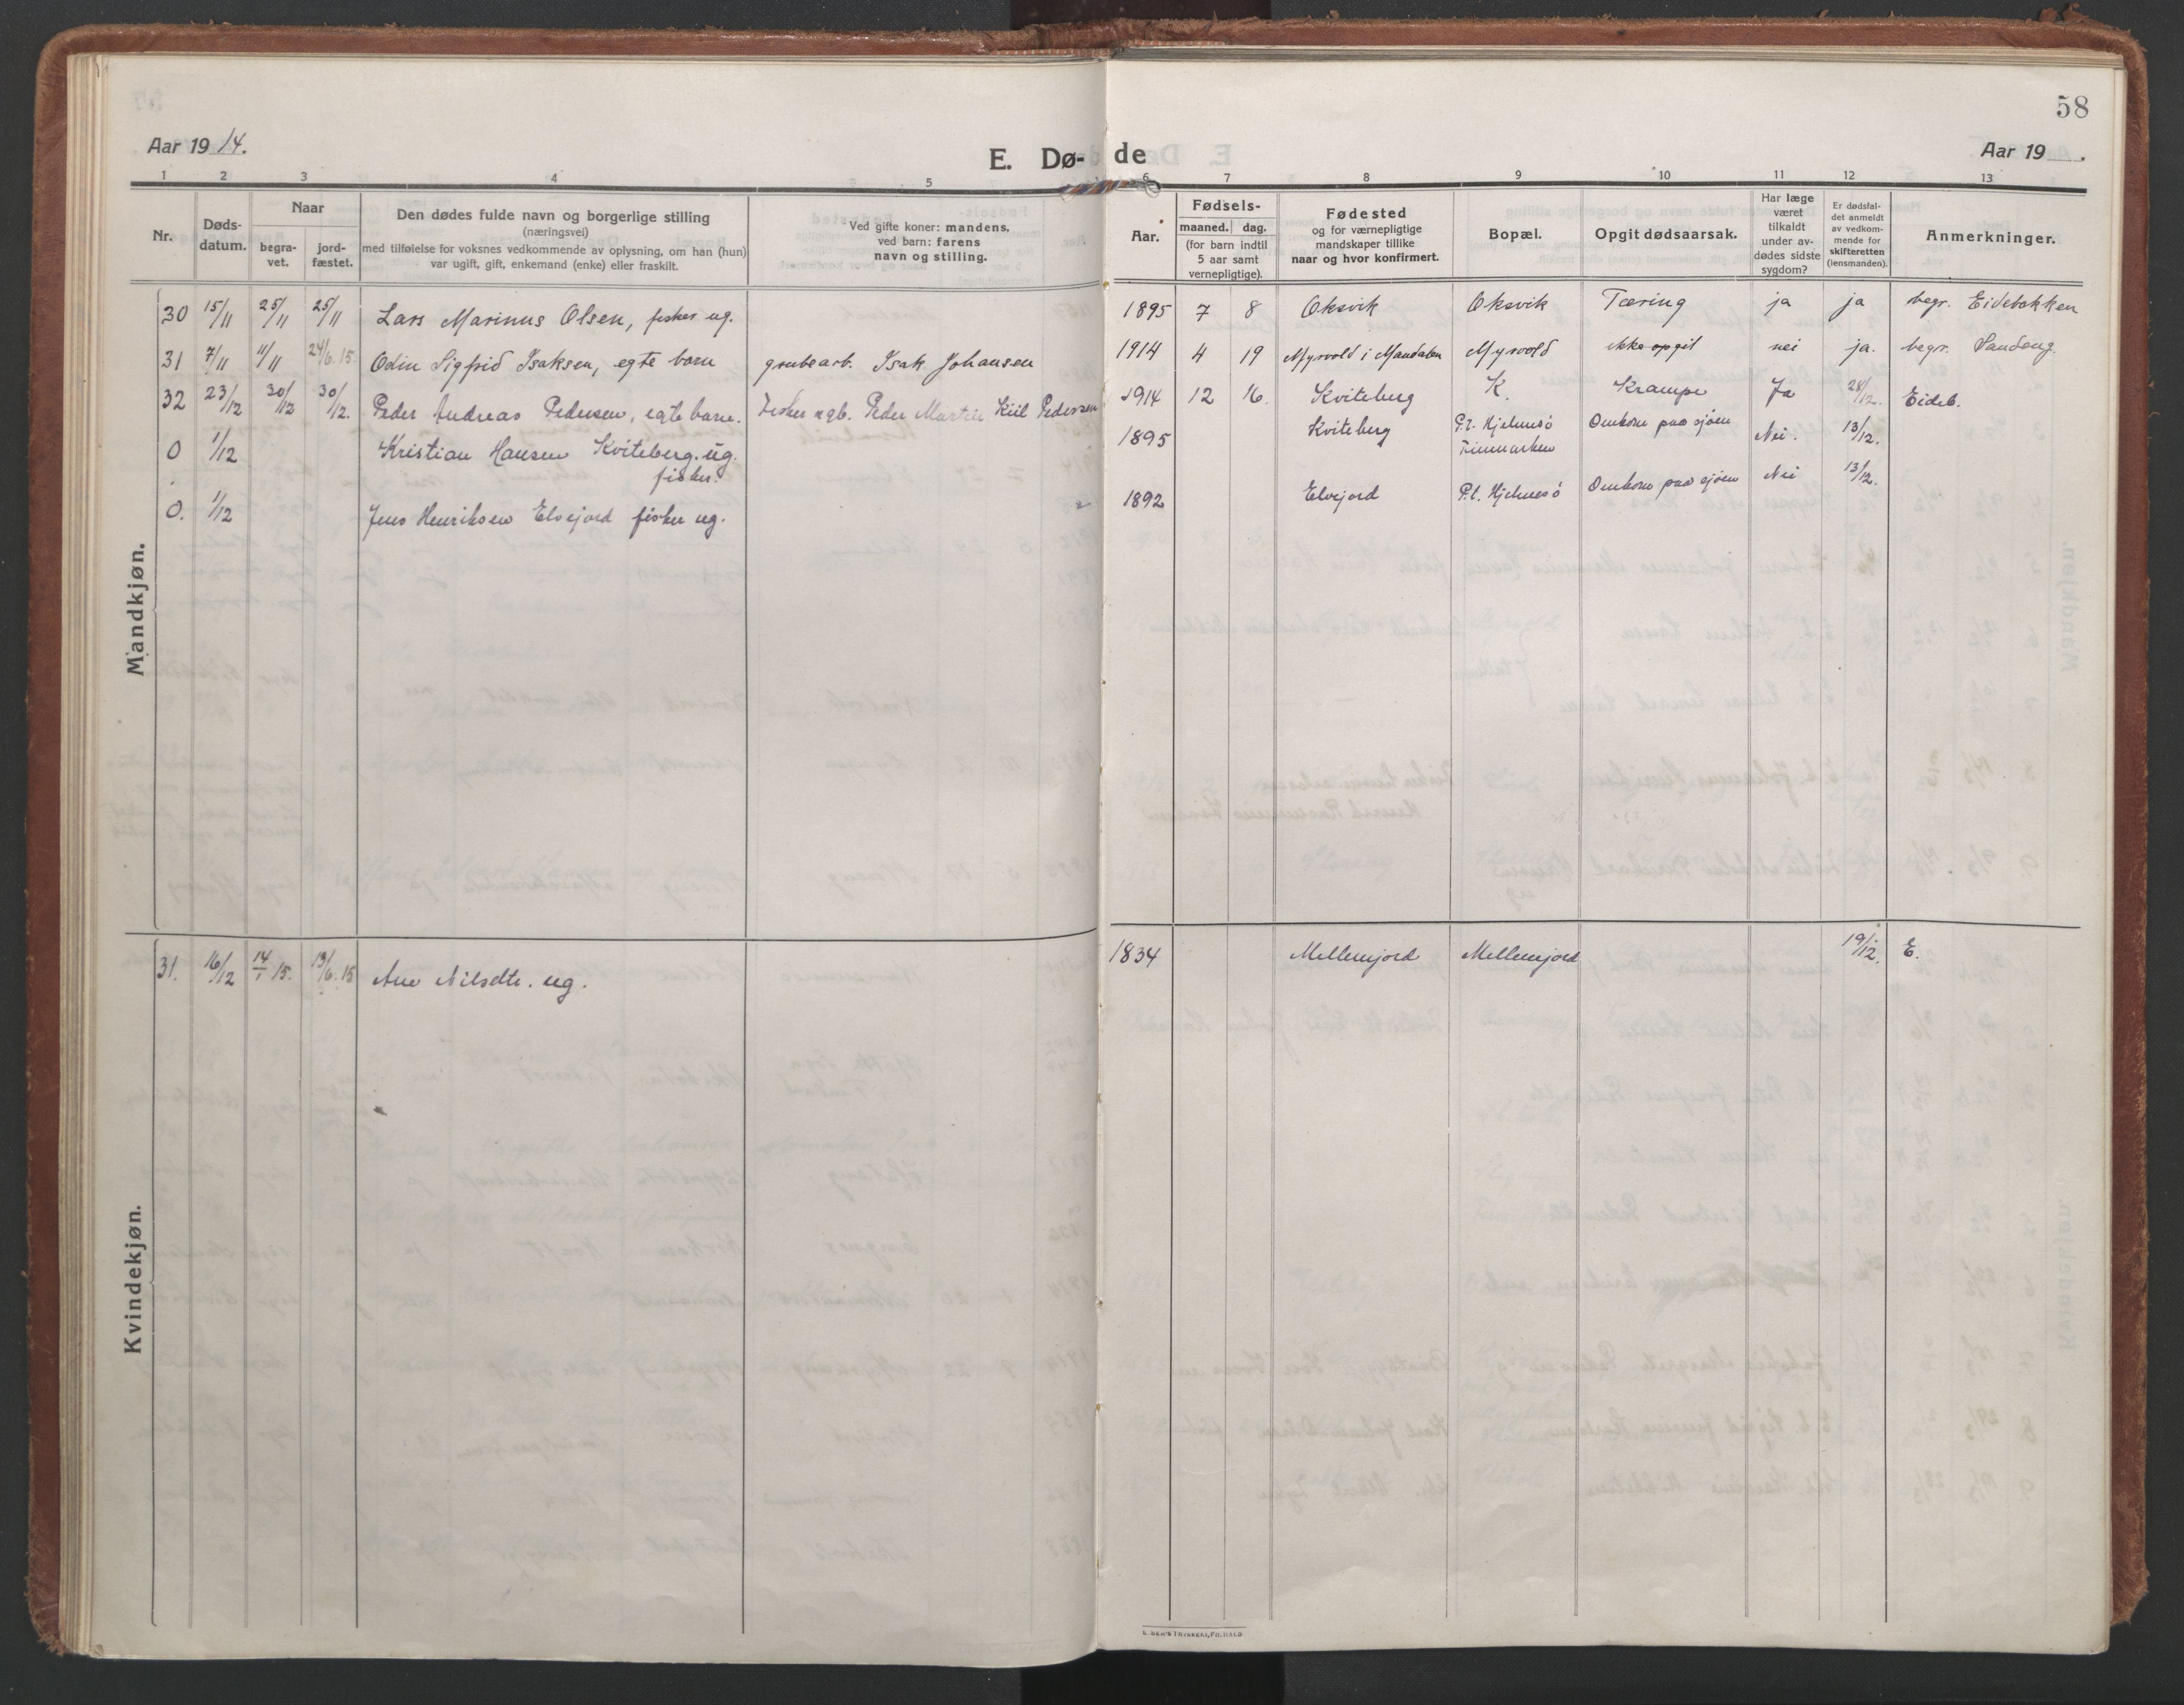 58
Aar 1914.
E. Dø- de
Aar 19 .
1 2 3 4 5 6 7 8 9 10 11 12 13
Nr.
Døds-
datum.
Naar
begra-
vet.
jord-
fæstet.
Den dødes fulde navn og borgerlige stilling
(næringsvei)
med tilføielse for voksnes vedkommende av oplysning, om han (hun)
var ugift, gift, enkemand (enke) eller fraskilt.
Ved gifte koner: mandens,
ved barn: farens
navn og stilling.
Aar.
Fødsels-
maaned. dag.
(for barn indtil
5 aar samt
vernepligtige).
Fødested
og for værnepligtige
mandskaper tillike
naar og hvor konfirmert.
Bopæl.
Opgit dødsaarsak.
Har læge
været
tilkaldt
under av-
dødes sidste
sygdom?
Er dødsfal-
det anmeldt
av vedkom-
mende for
skifteretten
(lensmanden).
Anmerkninger.
Mandkjøn.
30 15/11 25/11 25/11 Lars Marinus Olsen, fisker ug. 1895 7 8 Oksvik Oksvik Tæring ja ja begr. Eidebakken
31 7/11 11/11 24/6.15 Odin Sigfrid Isaksen, egte barn grubearb. Isak Johansen 1914 4 19 Myrvold i Mandalen Myrvold ikke opgit nei ja. begr. Sandeng.
32 23/12 30/12 30/12. Peder Andreas Pedersen, egte barn. Fisker ugb. Peder Martin Kiil Pedersen 1914 12 16. Kviteberg K. Krampe Ja 28/12. Eideb.
0 1/12 Kristian Hansen Kviteberg. ug. 1895 Kviteberg P.t. Hjelmsö Omkom paa sjöen Nei. 13/12.
fisker. Finmarken
0. 1/12 Jens Henriksen Elvejord fisker ug. 1892 Elvejord P.t. Hjelmsö Omkom paa sjöen Nei 13/12.
Kvindekjøn.
31. 16/12 14/1 15. 13/6.15 Ane Nilsdtr. ug. 1834 Mellemjord Mellemjord 19/12. E.